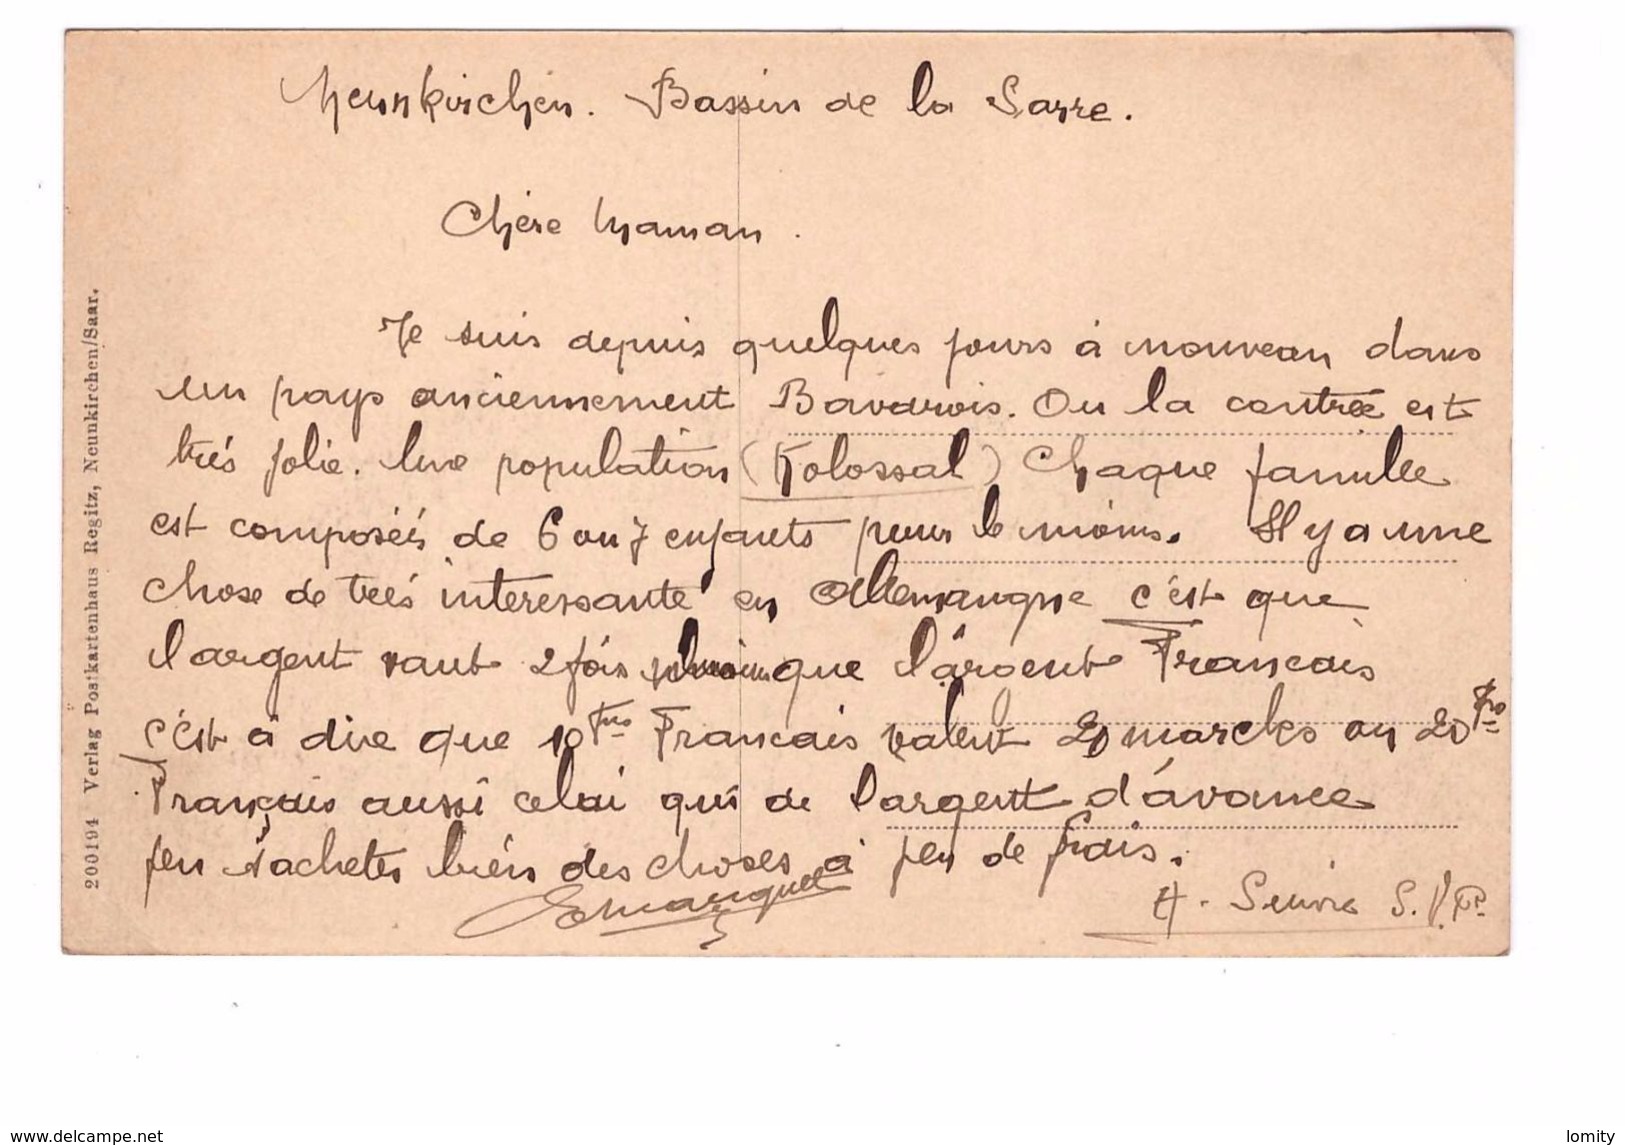 Neunkirchen. Bassin de la Sarre.
Chère Maman.
Je suis depuis quelques jours à nouveau dans
un pays anciennement Bavarois. Ou la contrée est
trés jolie. Une population (Kolossal) Chaque famille
est composéés de 6 ou 7 enfants pour le moins. Il y a une
chose de trés interessante en Allemangne c'est que
l'argent vaut 2 fois moins que l'argent Francais
c'est à dire que 10 frs Francais valent 20 marcks ou 20 frs
Français aussi celui qui de l'argent d'avance
peu s'acheter bién des choses à peu de frais.
A. Suivre S.V.P.
200194 Verlag Postkartenhaus Regitz, Neunkirchen/Saar.
www.delcampe.net
lomity